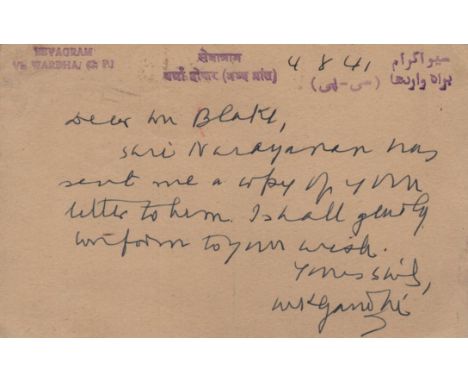 SEVAGRAM
VIA WARDHA (C P.)
सेवाग्राम
वर्धा होकर (मध्य प्रांत)
سیواگرام
براہ واردھا (سی - پی)
4 8 41
Dear Mr Blake,
Shri Narayanan has
sent me a copy of your
letter to him. I shall gladly
conform to your wish.
Yours sinly,
MKGandhi